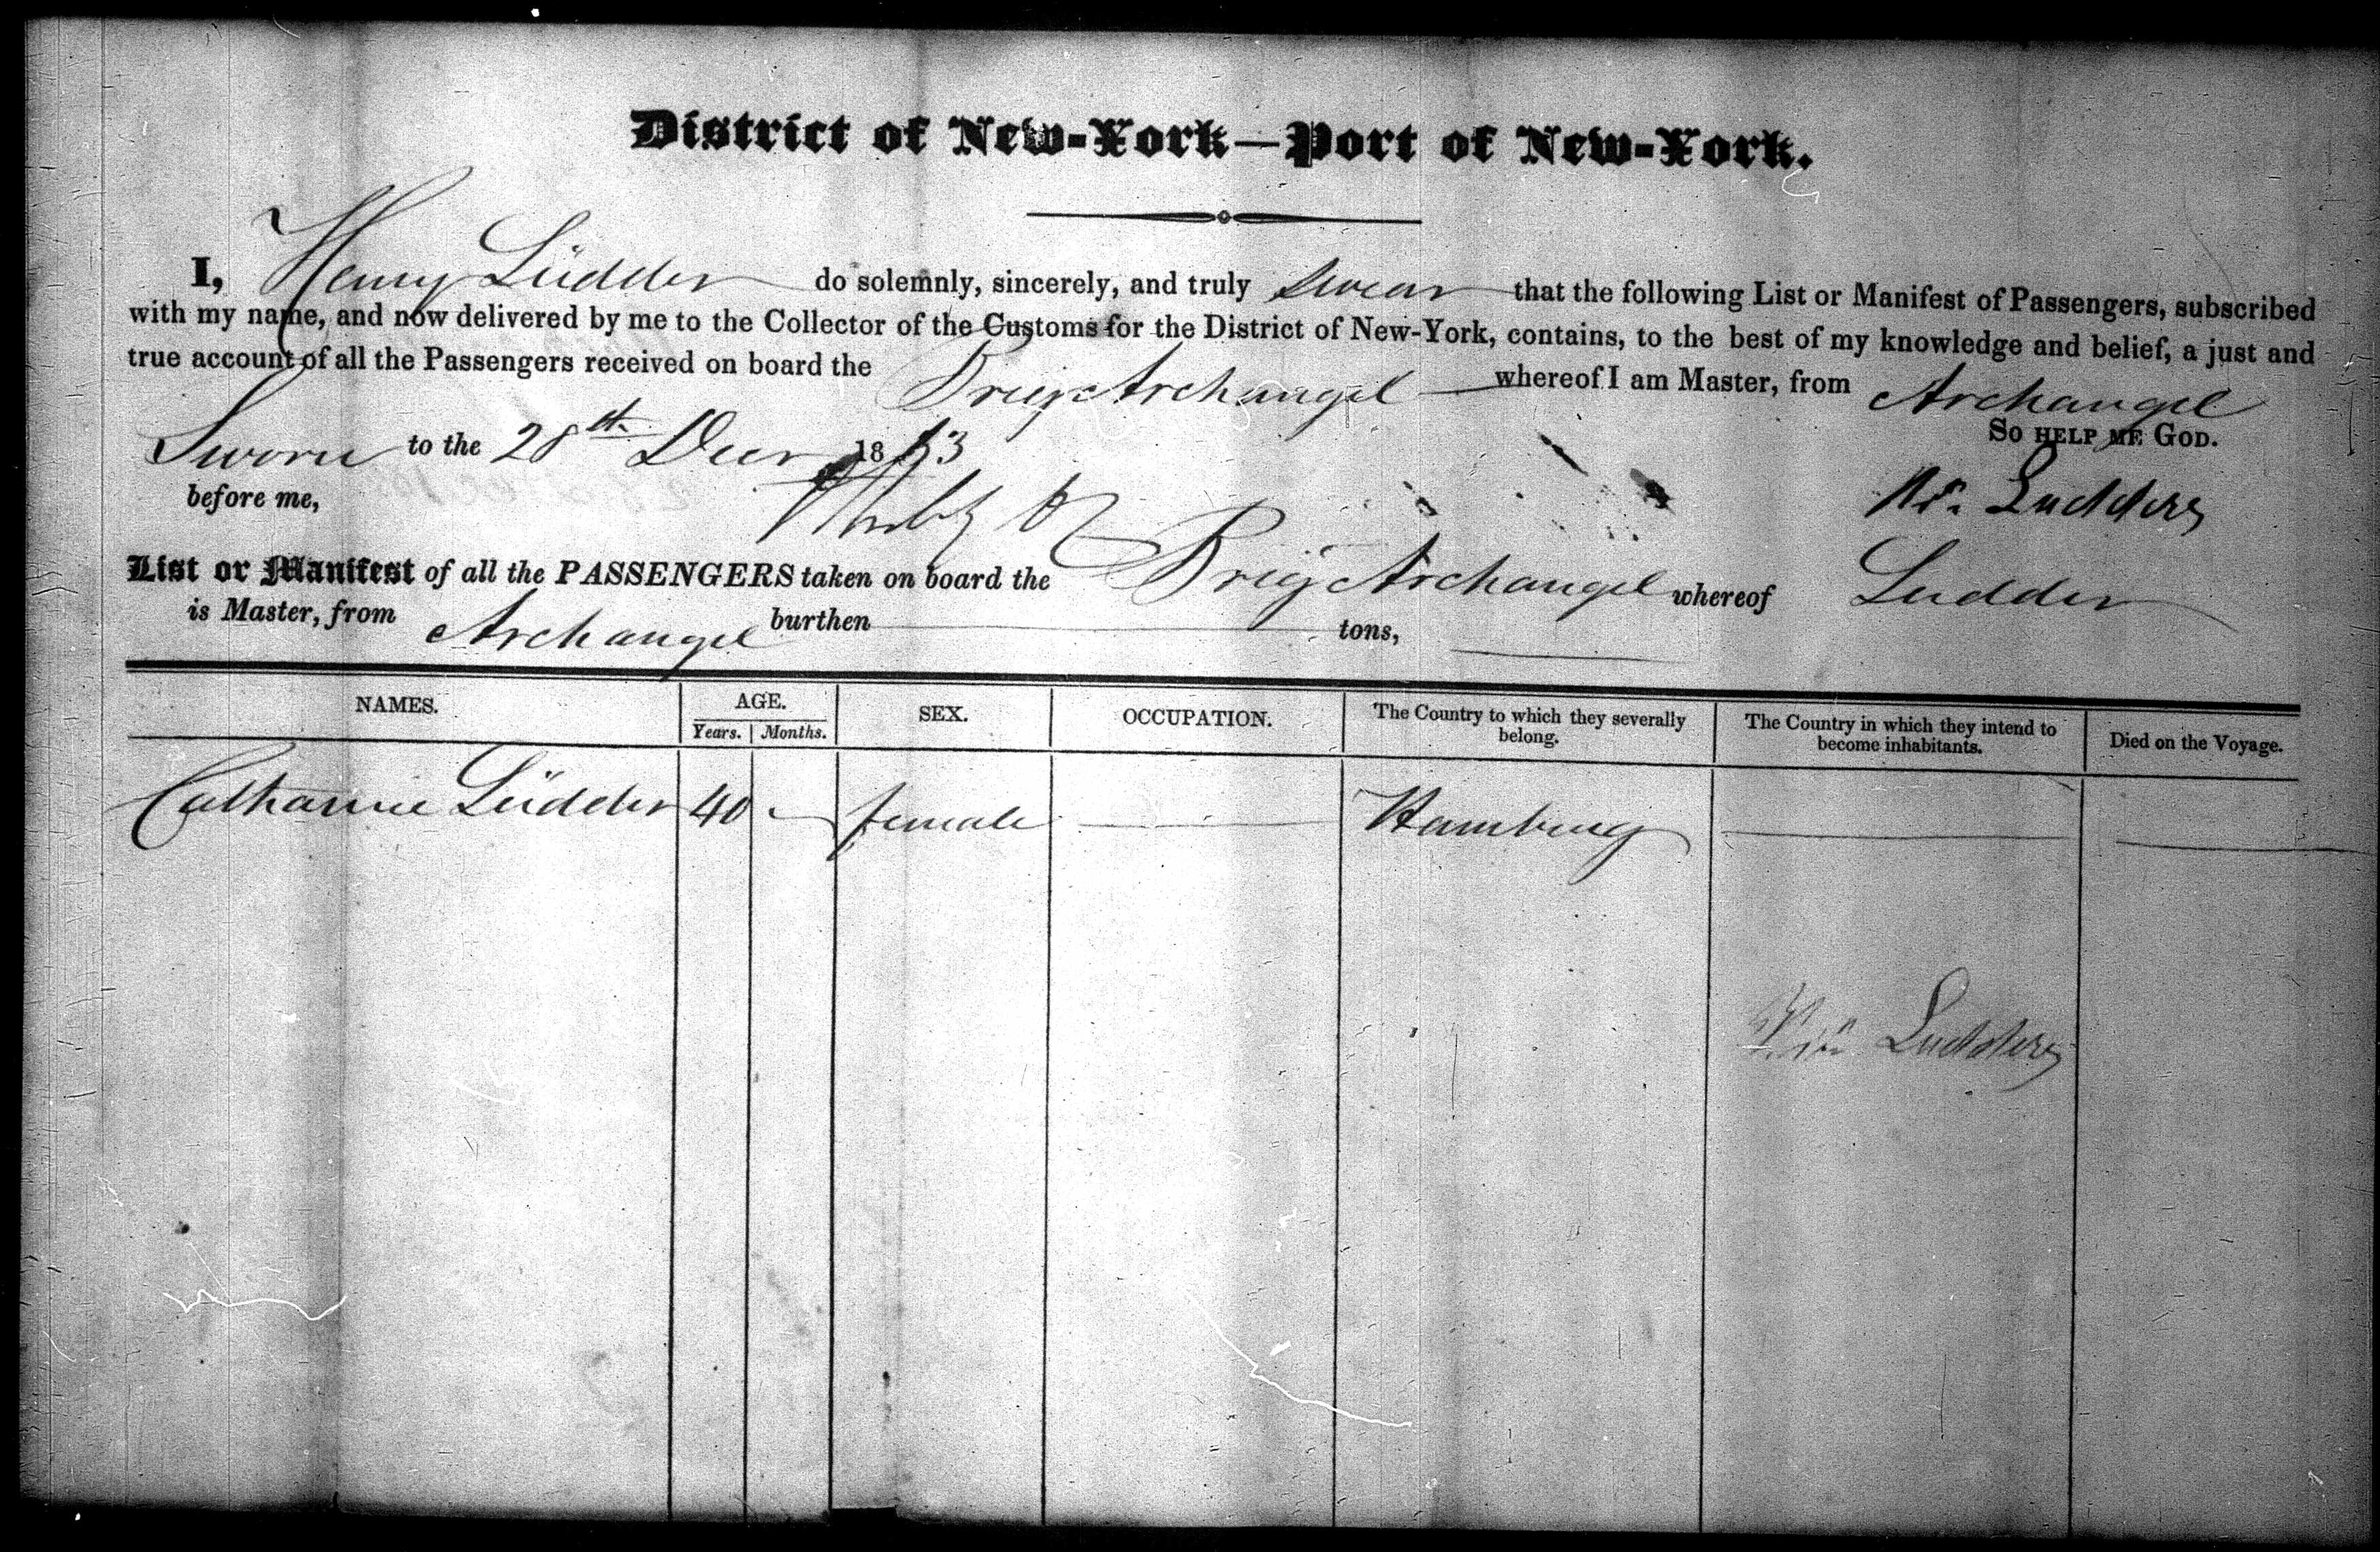 District of New-York—Port of New-York.
I, Henry Lüdder do solemnly, sincerely, and truly swear that the following List or Manifest of Passengers, subscribed
with my name, and now delivered by me to the Collector of the Customs for the District of New-York, contains, to the best of my knowledge and belief, a just and
true account of all the Passengers received on board the Brig Archangel whereof I am Master, from Archangel
So help me God.
Sworn to the 28th Decr 1853
before me,
Ludders
List or Manifest of all the PASSENGERS taken on board the Brig Archangel whereof Ludder
is Master, from Archangel burthen tons,
NAMES. AGE. SEX. OCCUPATION. The Country to which they severally belong. The Country in which they intend to become inhabitants. Died on the Voyage.
Years. Months.
Catharine Lüdder 40 female Hamburg
Ludders